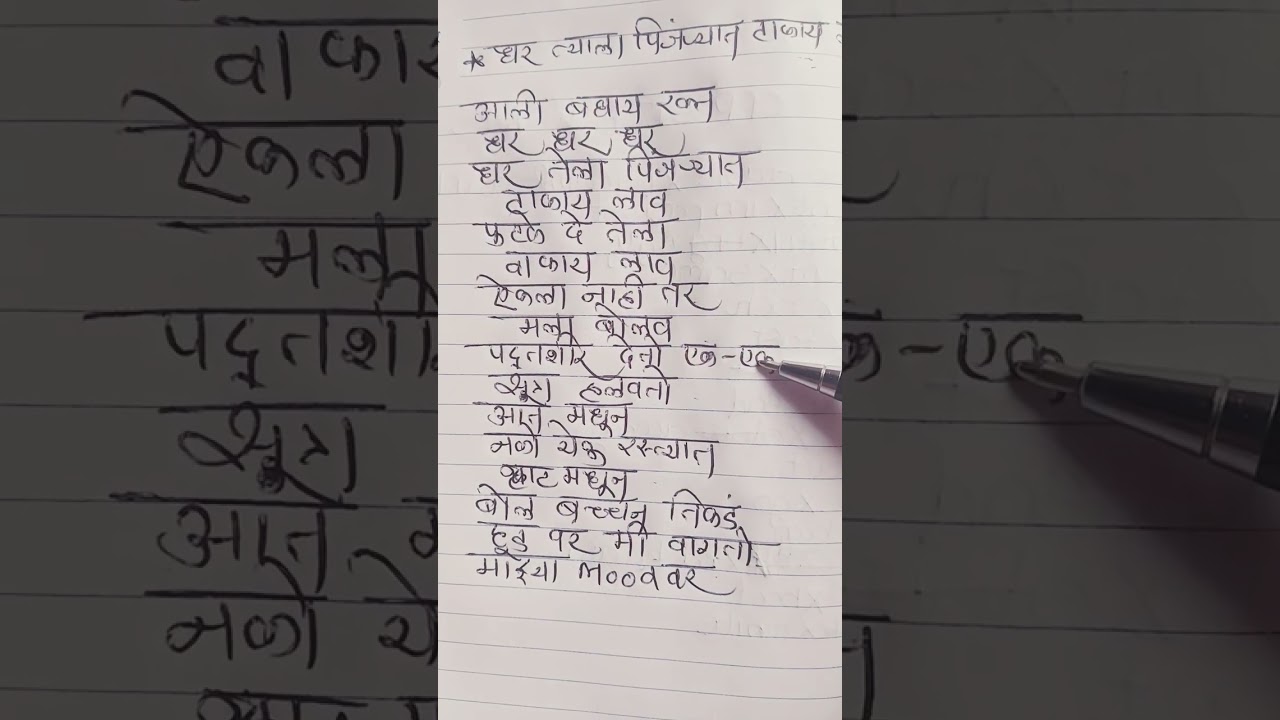 * धर त्याला पिंजऱ्यात टाकाय
आली बघाय रक्त
धर धर धर
धर तेला पिंजऱ्यात
टाकाय लाव
फटके दे तेला
वाकाय लाव
ऐकला नाही तर
मला बोलव
पद्तशीर देतो एक-एक
सूत्र हलवतो
आत मधून
नको येऊ रस्त्यात
काट मधून
बोल बच्चन तिकडं
हुड वर मी वागतो
माझ्या mood वर